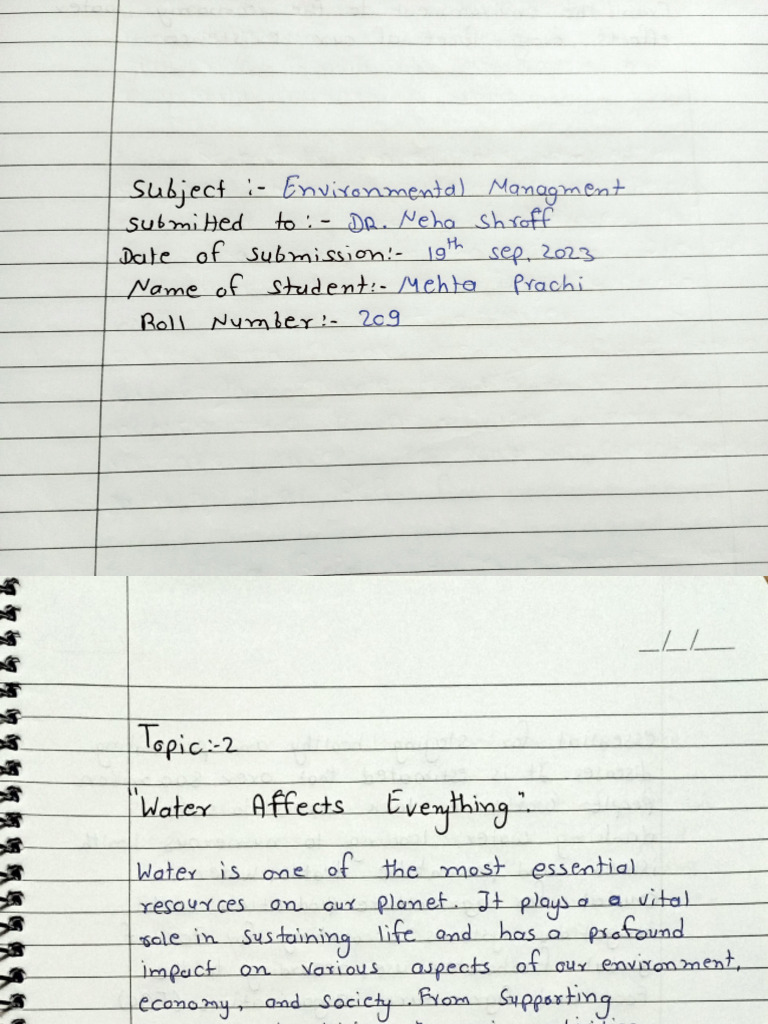 Subject :- Environmental Managment
submitted to :- DR. Neha Shroff
Date of submission:- 19th sep, 2023
Name of student:- Mehta Prachi
Roll Number:- 209
_/_/_
Topic:-2
"Water Affects Everything".
Water is one of the most essential
resources on our planet. It plays a a vital
role in sustaining life and has a profound
impact on various aspects of our environment,
economy, and society. From supporting